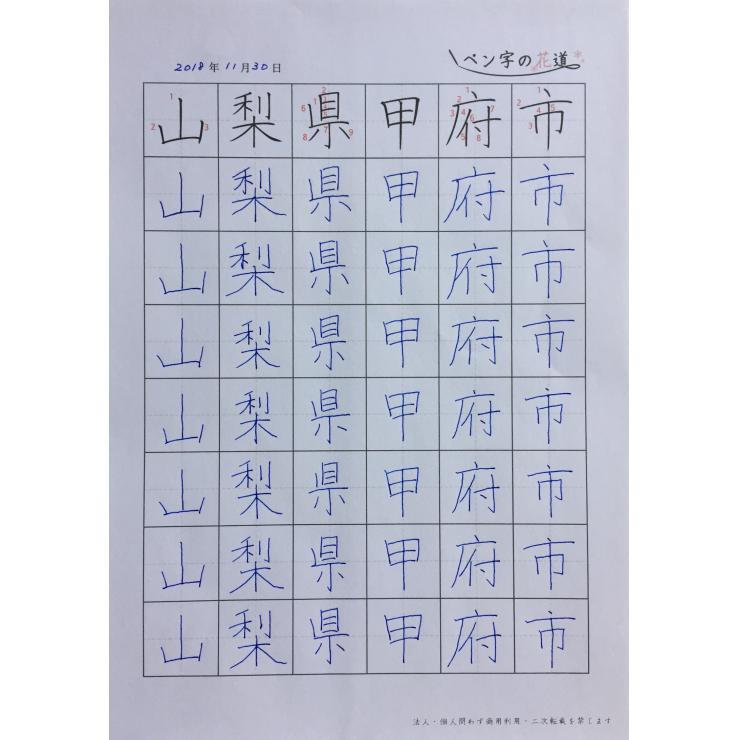 2018年11月30日
ペン字の花道
山梨県甲府市
山梨県甲府市
山梨県甲府市
山梨県甲府市
山梨県甲府市
山梨県甲府市
山梨県甲府市
山梨県甲府市
法人・個人問わず商用利用・二次転載を禁じます